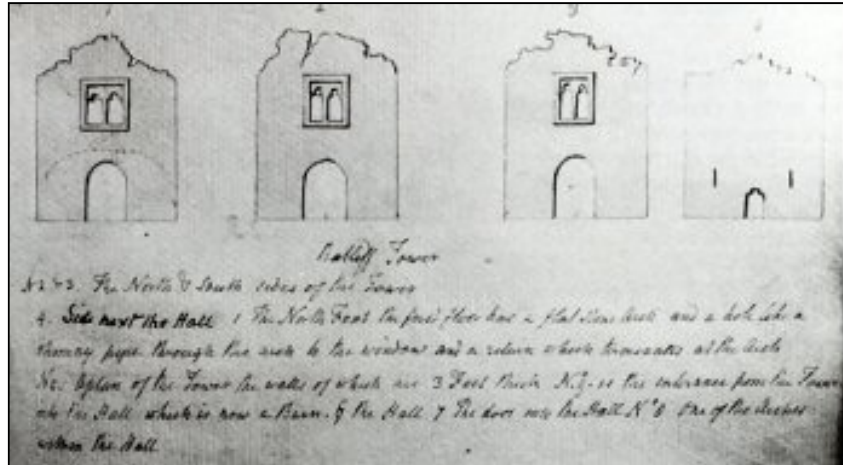 1 2 3
Tower
N 2 & 3. The North & South sides of the Tower
4. Side next the Hall 1 The North East the first floor has a flat stone Arch and a hole like a
chimney pipe through the arch to the window and a return which terminates at the Arch
of the Tower the walls of which are 3 Feet thick is the entrance from the Tower
into the Hall which is now a Barn. 6 the Hall 7 The door into the Hall No 8 One of the Arches
within the Hall